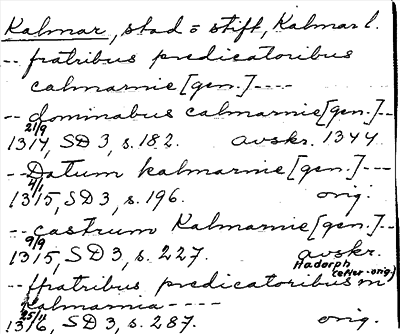 Kalmar, stad o stift, Kalmar l.
-- fratribus predicatoribus
calmarnie [gen.] ----
-- dominabus calmarnie [gen.] --
21/9
1314, SD 3, s. 182. avskr. 1344
-- Datum kalmarnie [gen.] ---
4/1
1315, SD 3, s. 196. orig.
-- castrum Kalmarnie [gen.] --
9/9
1315, SD 3, s. 227. avskr.
Hadorph
(efter orig)
-- ffratribus predicatoribus in
Kalmarnia ----
25/11
1316, SD 3, s. 287. orig.